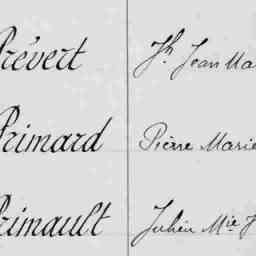 Prévert Jh Jean Ma
Primard Pierre Marie
Primault Julien Mie J